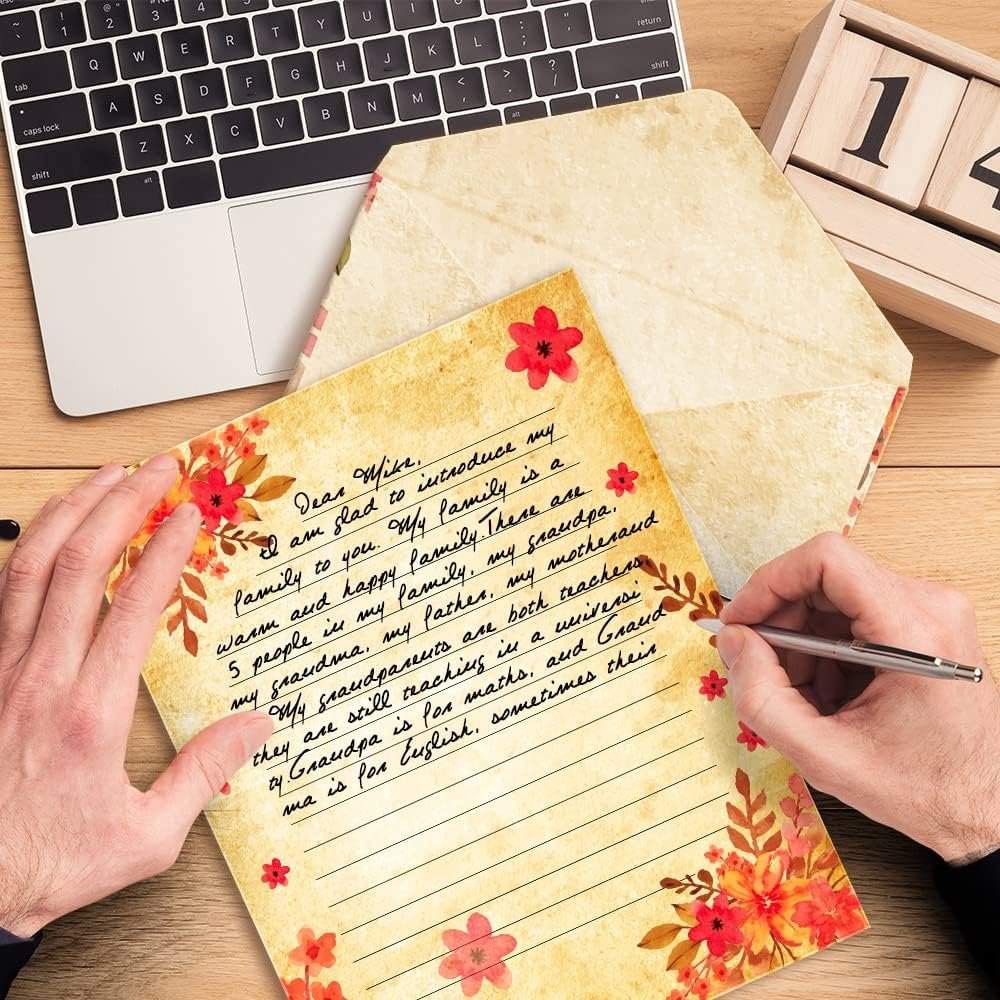 ~ ! 1 @ 2 # 3 $ 4
tab Q W E R T Y U I O P
caps lock A S D F G H J K L : ; " ' return
shift Z X C V B N M < , > . ? / shift
alt alt
14
Dear Mike,
I am glad to introduce my
family to you. My family is a
warm and happy family.There are
5 people in my family, my grandpa,
my grandma, my father, my motherand
My grandparents are both teachers.
they are still teaching in a universi
ty.Grandpa is for maths, and Grand
ma is for English, sometimes their